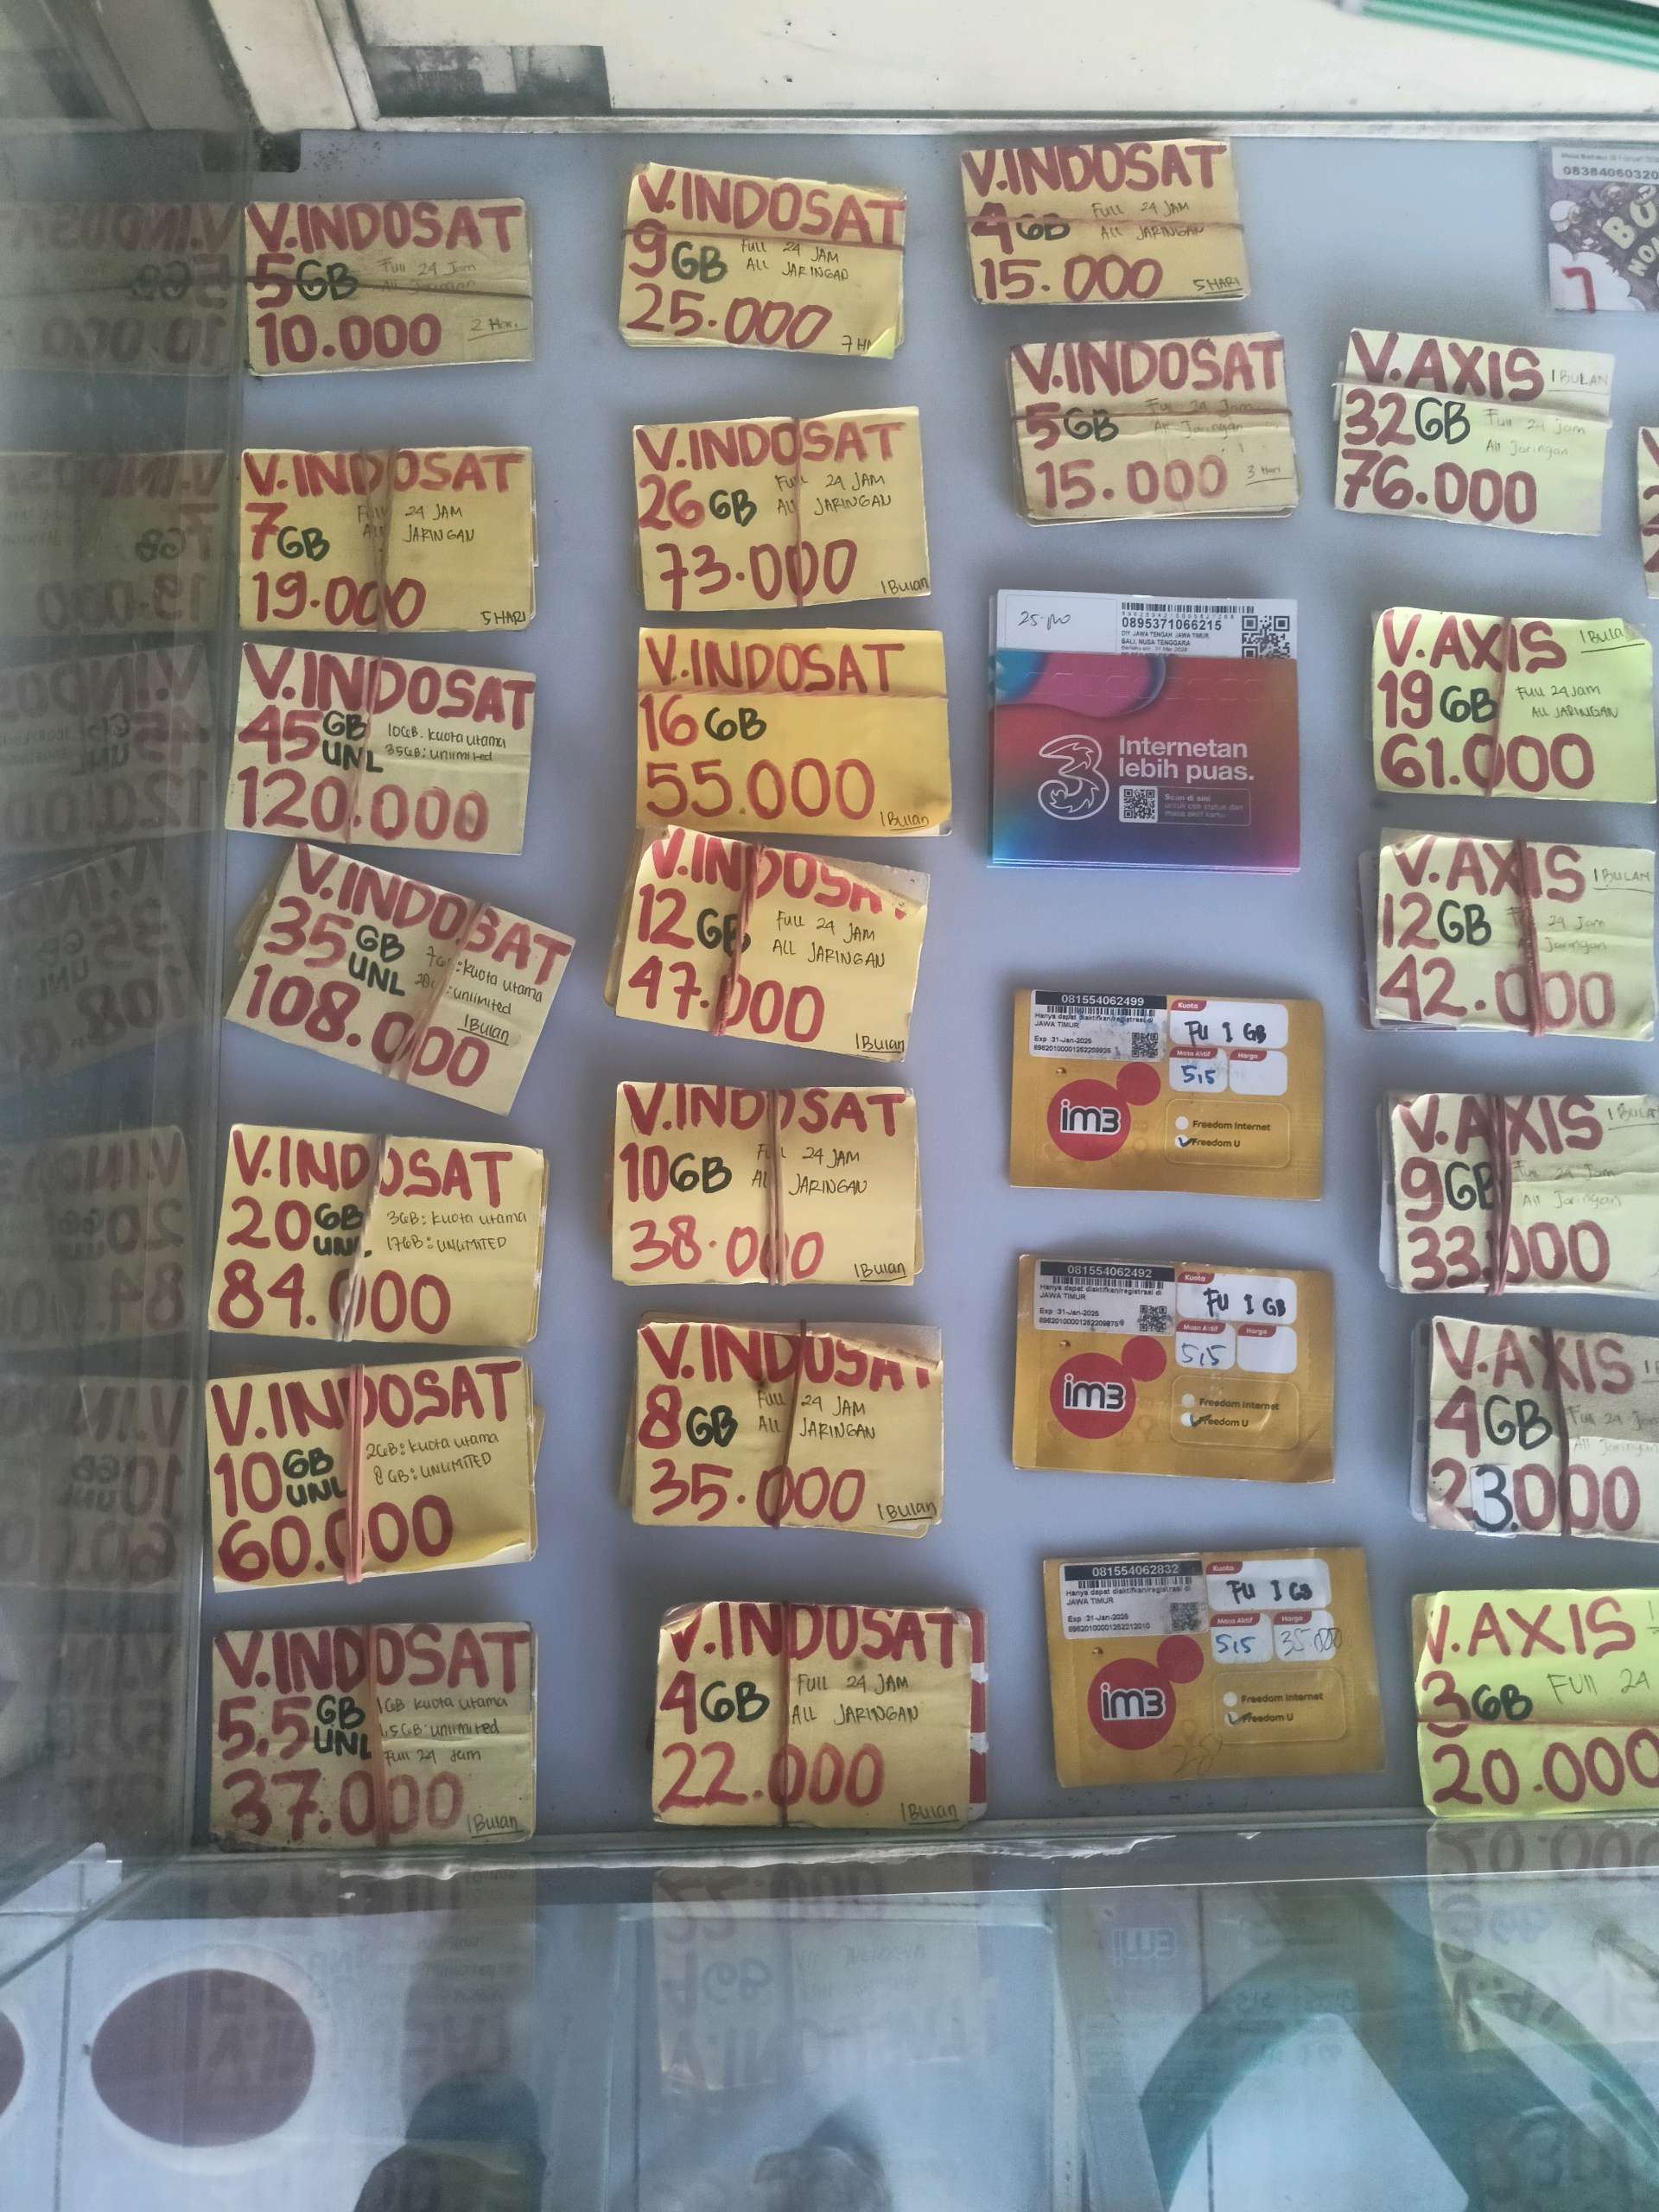 V.INDOSAT
5GB Full 24 Jam
All Jaringan
10.000 2 Hari
V.INDOSAT
7GB FULL 24 JAM
ALL JARINGAN
19.000 5 HARI
V.INDOSAT
45 GB UNL 10GB. kuota utama
35GB: unlimited
120.000
V.INDOSAT
35 GB UNL :kuota utama
:unlimited
1Bulan
108.000
V.INDOSAT
20 GB UNL 3GB: kuota utama
17GB: UNLIMITED
84.000
V.INDOSAT
10 GB UNL 2GB: kuota utama
GB: UNLIMITED
60.000
V.INDOSAT
5,5 GB UNL 1GB kuota utama
unlimited
Full 24 Jam
37.000 1Bulan
V.INDOSAT
9GB FULL 24 JAM
ALL JARINGAN
25.000
V.INDOSAT
26GB FULL 24 JAM
ALL JARINGAN
73.000 1Bulan
V.INDOSAT
16GB
55.000 1Bulan
V.INDOSAT
12GB FULL 24 JAM
ALL JARINGAN
47.000 1Bulan
V.INDOSAT
10GB FULL 24 JAM
ALL JARINGAN
38.000 1Bulan
V.INDOSAT
8GB FULL 24 JAM
ALL JARINGAN
35.000 1Bulan
V.INDOSAT
4GB FULL 24 JAM
ALL JARINGAN
22.000 1Bulan
V.INDOSAT
4GB FULL 24 JAM
ALL JARINGAN
15.000 5 HARI
V.INDOSAT
5GB Full 24 Jam
All Jaringan
15.000 3 Hari
0895371066215
DIY JAWA TENGAH JAWA TIMUR
BALI, NUSA TENGGARA
3
Internetan
lebih puas.
Scan di sini
untuk cek status dan
masa aktif kartu
081554062499
Hanya dapat diaktifkan/registrasi di
JAWA TIMUR
Exp 31-Jan-2025
Kuota
FU 1 GB
Masa Aktif Harga
5,5
im3
Freedom Internet
Freedom U
081554062492
Hanya dapat diaktifkan/registrasi di
JAWA TIMUR
Exp 31-Jan-2025
Kuota
FU 1 GB
Masa Aktif Harga
5,5
im3
Freedom Internet
Freedom U
081554062832
Hanya dapat diaktifkan/registrasi di
JAWA TIMUR
Exp 31-Jan-2025
Kuota
FU 1 GB
Masa Aktif Harga
5,5 35.000
im3
Freedom Internet
Freedom U
V.AXIS 1 BULAN
32GB Full 24 jam
All Jaringan
76.000
V.AXIS
19GB FUll 24Jam
ALL JARINGAN
61.000
V.AXIS 1 BULAN
12GB 24 Jam
Jaringan
42.000
V.AXIS
9GB Full 24 Jam
All Jaringan
33.000
V.AXIS
4GB Full 24
All
23.000
V.AXIS
3GB FUll 24
20.000
08384060320
7